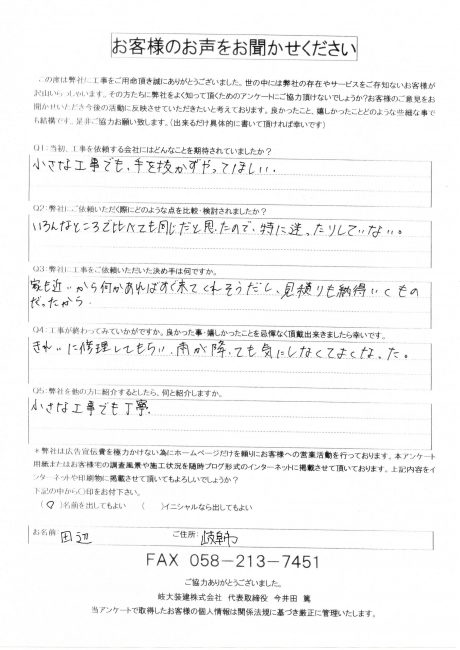 お客様のお声をお聞かせください
この度は弊社に工事をご用命頂き誠にありがとうございました。世の中には弊社の存在やサービスをご存知ないお客様が
沢山いらっしゃいます。その方たちに弊社をよく知って頂くためのアンケートにご協力頂けないでしょうか?お客様のご意見をお
聞かせいただき今後の活動に反映させていただきたいと考えております。良かったこと、嬉しかったことどのような些細な事で
も結構です、是非ご協力お願い致します。（出来るだけ具体的に書いて頂ければ幸いです）
Q1:当初、工事を依頼する会社にはどんなことを期待されていましたか?
小さな工事でも、手を抜かずやってほしい.
Q2:弊社にご依頼いただく際にどのような点を比較・検討されましたか?
いろんなところで比べても同じだと思ったので、特に迷ったりしていない。
Q3:弊社に工事をご依頼いただいた決め手は何ですか。
家も近いから何かあればすぐ来てくれそうだし、見積りも納得いくもの
だったから.
Q4:工事が終わってみていかがですか。良かった事・嬉しかったことを忌憚なく頂戴出来ましたら幸いです。
きれいに修理してもらい、雨が降っても気にしなくてよくなった。
Q5:弊社を他の方に紹介するとしたら、何と紹介しますか。
小さな工事でも丁寧.
＊弊社は広告宣伝費を極力かけない為にホームページだけを頼りにお客様への営業活動を行っております。本アンケート
用紙またはお客様宅の調査風景や施工状況を随時ブログ形式のインターネットに掲載させて頂いております。上記内容をイ
ンターネットや印刷物に掲載させて頂いてもよろしいでしょうか?
下記の中から〇印をお付下さい。
（〇）名前を出してもよい　（　）イニシャルなら出してもよい
お名前: 田辺　ご住所: 岐阜
FAX 058－213－7451
ご協力ありがとうございました。
岐大装建株式会社　代表取締役　今井田　篤
当アンケートで取得したお客様の個人情報は関係法規に基づき厳正に管理いたします。